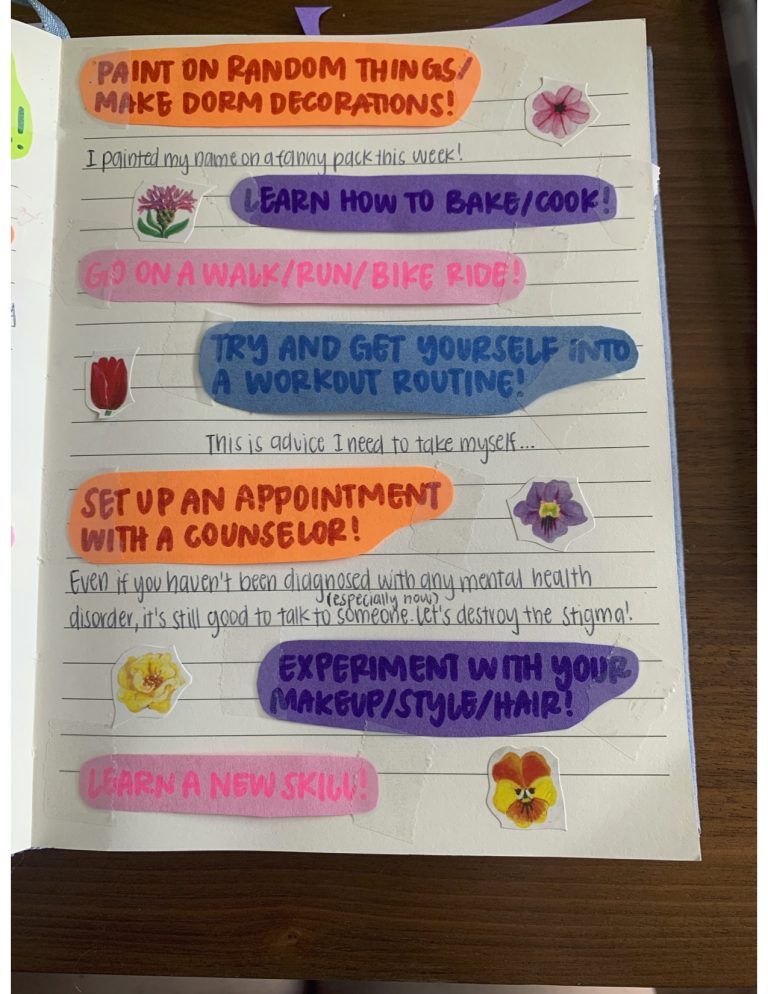 PAINT ON RANDOM THINGS/
MAKE DORM DECORATIONS!
I painted my name on a fanny pack this week!
LEARN HOW TO BAKE/COOK!
GO ON A WALK/RUN/BIKE RIDE!
TRY AND GET YOURSELF INTO
A WORKOUT ROUTINE!
This is advice I need to take myself...
SET UP AN APPOINTMENT
WITH A COUNSELOR!
Even if you haven't been diagnosed with any mental health
(especially now)
disorder, it's still good to talk to someone. Let's destroy the stigma!
EXPERIMENT WITH YOUR
MAKEUP/STYLE/HAIR!
LEARN A NEW SKILL!